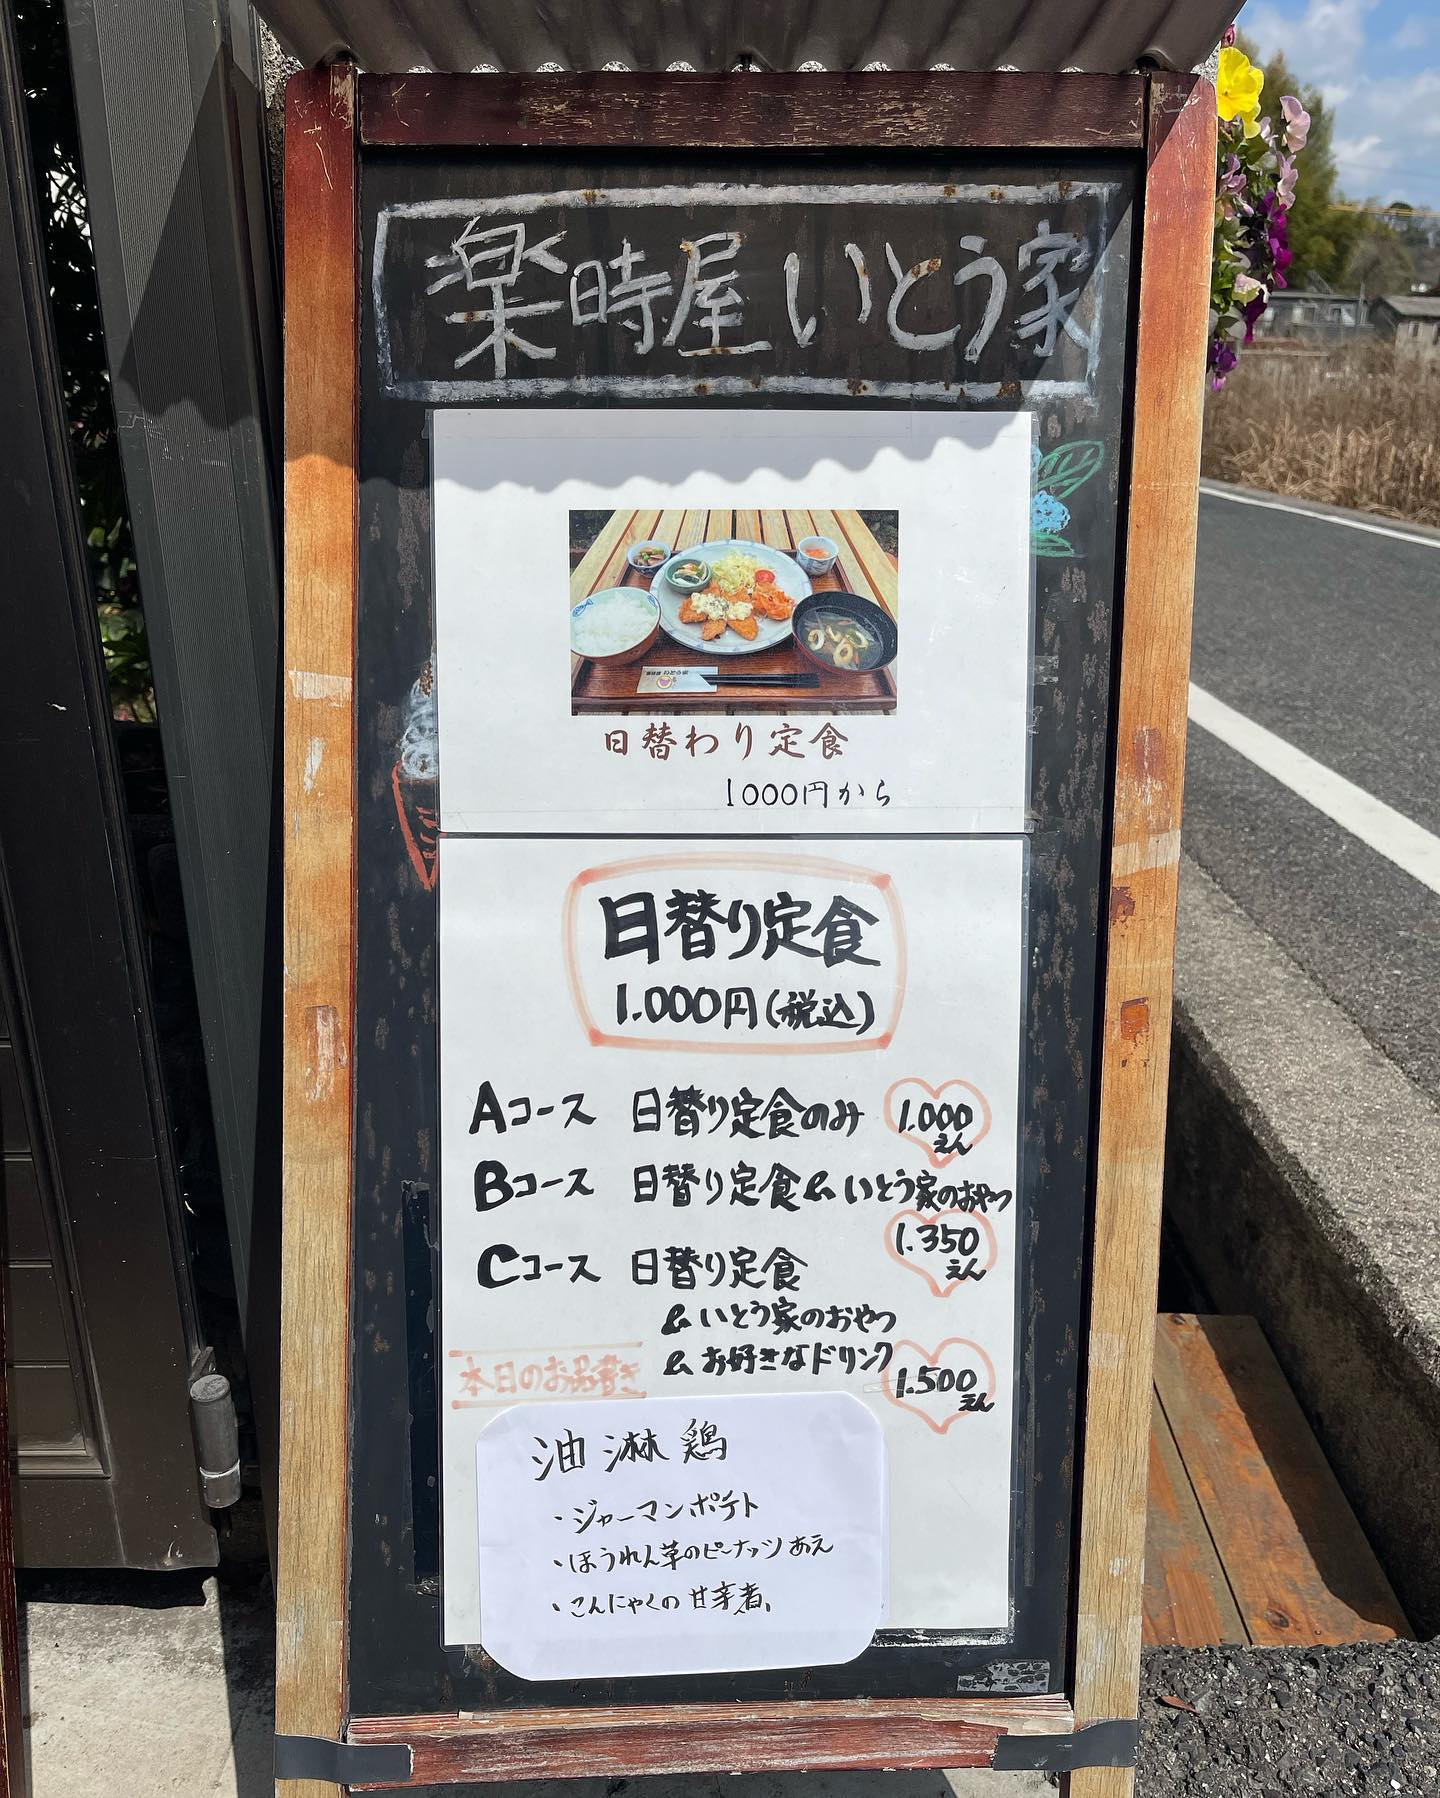 楽時屋 いとう家
日替わり定食
1000円から
日替り定食
1.000円(税込)
Aコース 日替り定食のみ 1.000えん
Bコース 日替り定食 & いとう家のおやつ
1.350えん
Cコース 日替り定食
& いとう家のおやつ
& お好きなドリンク
1.500えん
本日のお品書き
油淋鶏
・ジャーマンポテト
・ほうれん草のピーナッツあえ
・こんにゃくの甘辛煮